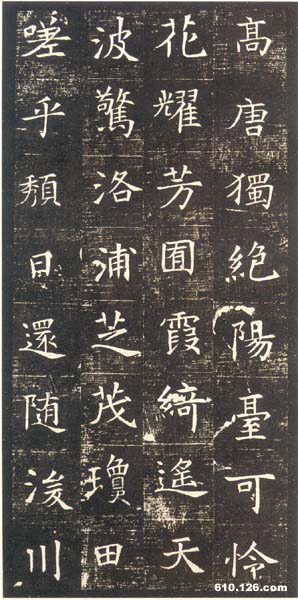 高唐獨絕陽臺可怜
花耀芳囿霞綺遙天
波驚洛浦芝茂瓊田
嗟乎頹日還随浚川
610.126.com